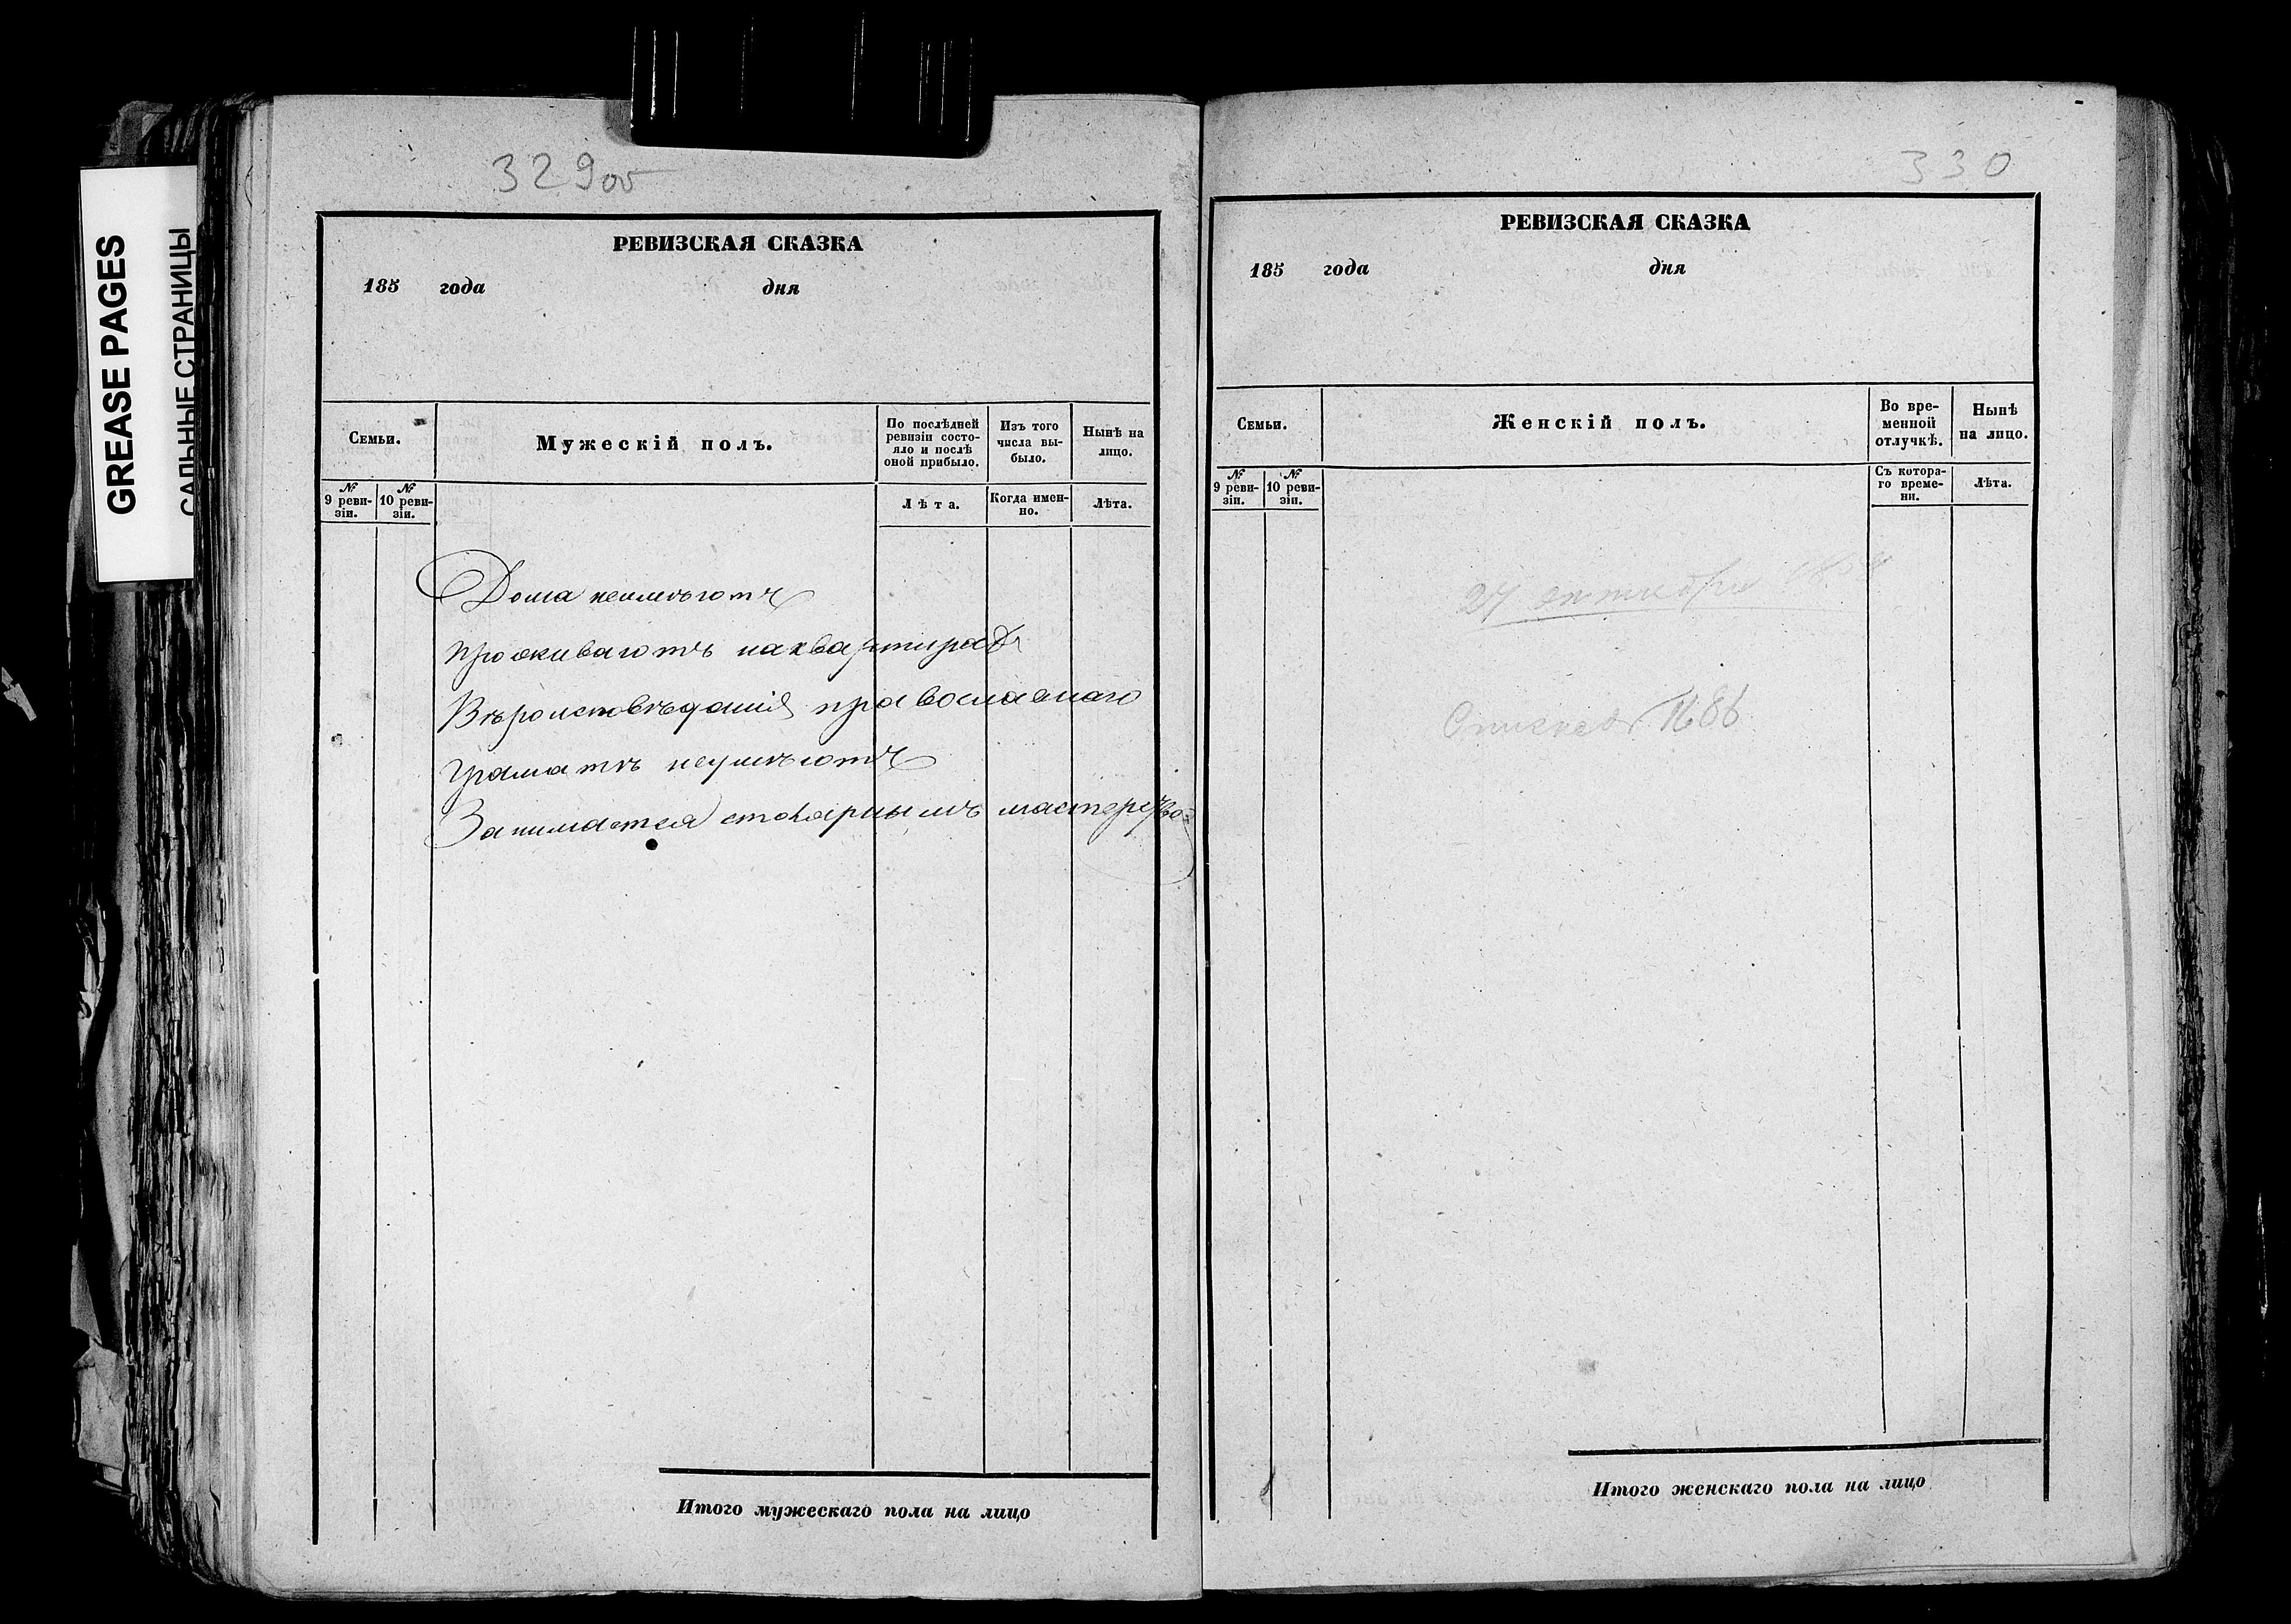 GREASE PAGES
САЛЬНЫЕ СТРАНИЦЫ
329об
РЕВИЗСКАЯ СКАЗКА
185 года дня
Семьи.
Мужескій полъ.
По послѣдней ревизіи состо-
яло и послѣ
оной прибыло.
Изъ того
числа вы-
было.
Нынѣ на
лицо.
№
9 реви-
зіи.
№
10 реви-
зіи.
Лѣта.
Когда имен-
но.
Лѣта.
Дома неимѣютъ
проживаютъ наквартирѣ
Вѣроисповѣданія православнаго
Грамотѣ неумѣютъ
Занимается столярнымъ мастерство=
Итого мужескаго пола на лицо
330
РЕВИЗСКАЯ СКАЗКА
185 года дня
Семьи.
Женскій полъ.
Во вре-
менной
отлучкѣ.
Нынѣ
на лицо.
№
9 реви-
зіи.
№
10 реви-
зіи.
Съ котора-
го време-
ни.
Лѣта.
27 октября 1858
№ 86
Итого женскаго пола на лицо